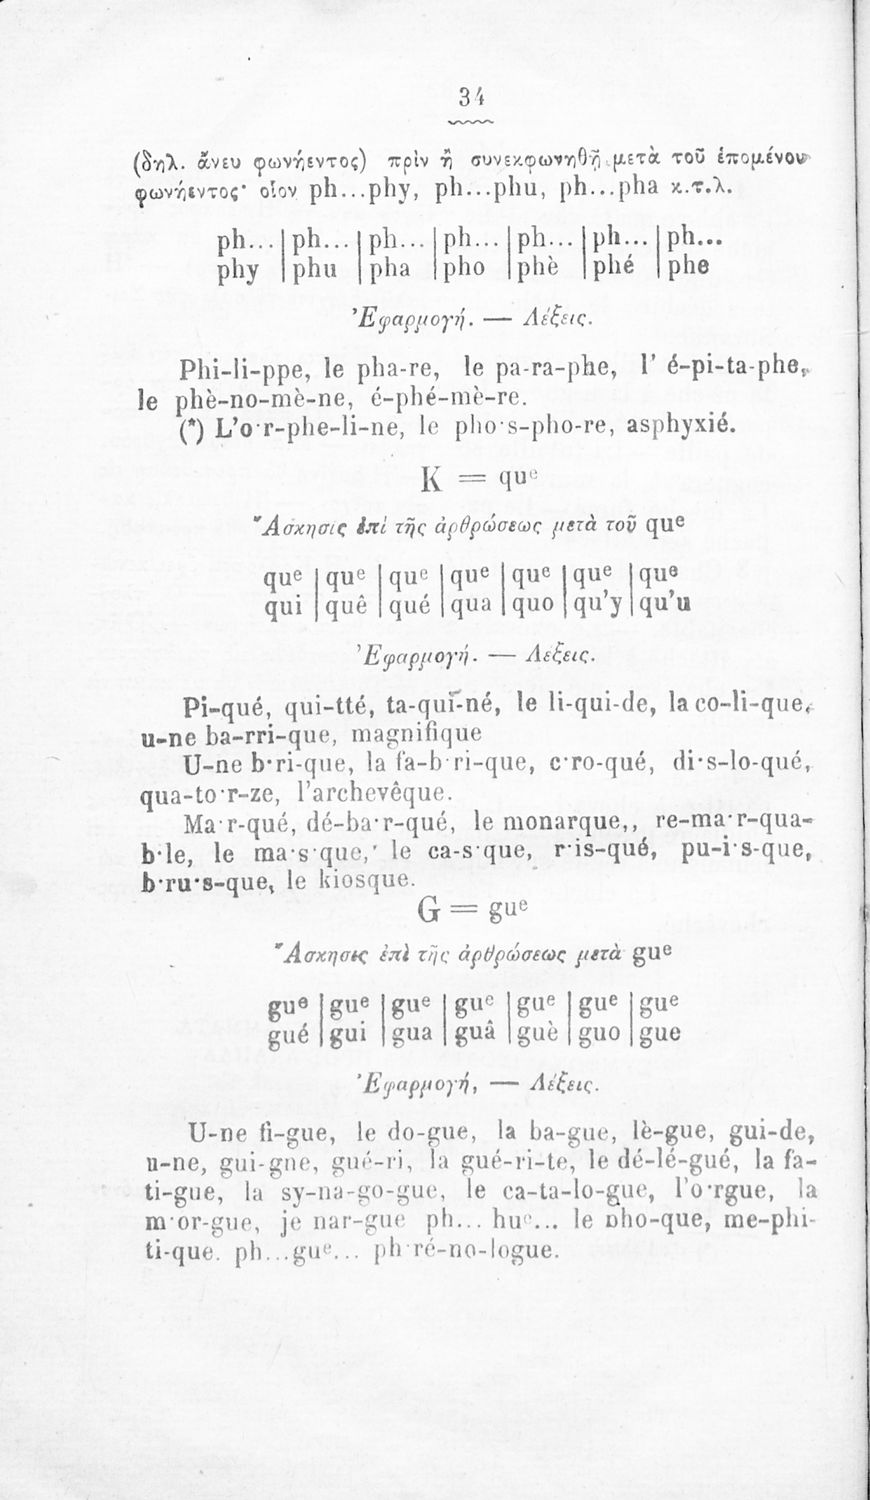 34
(δηλ. ἄνευ φωνήεντος) πρὶν ἢ συνεκφωνηθῇ μετὰ τοῦ ἑπομένου
φωνήεντος· οἷον ph...phy, ph...phu, ph...pha κ.τ.λ.
ph... | ph... | ph... | ph... | ph... | ph... | ph...
phy | phu | pha | pho | phè | phé | phe
Ἐφαρμογή. — Λέξεις.
Phi-li-ppe, le pha-re, le pa-ra-phe, l' é-pi-ta-phe,
le phè-no-mè-ne, é-phé-mè-re.
(*) L'o·r-phe-li-ne, le pho·s-pho-re, asphyxié.
K = que
Ἄσκησις ἐπὶ τῆς ἀρθρώσεως μετὰ τοῦ que
que | que | que | que | que | que | que
qui | quê | qué | qua | quo | qu'y | qu'u
Ἐφαρμογή. — Λέξεις.
Pi-qué, qui-tté, ta-qui-né, le li-qui-de, la co-li-que,
u-ne ba-rri-que, magnifique
U-ne b·ri-que, la fa-b·ri-que, c·ro-qué, di·s-lo-qué,
qua-to·r-ze, l'archevêque.
Ma·r-qué, dé-ba·r-qué, le monarque,, re-ma·r-qua-
b·le, le ma·s·que,' le ca-s·que, r·is-qué, pu-i·s-que,
b·ru·s-que, le kiosque.
G = gue
Ἄσκησις ἐπὶ τῆς ἀρθρώσεως μετὰ gue
gue | gue | gue | gue | gue | gue | gue
gué | gui | gua | guâ | guè | guo | gue
Ἐφαρμογή, — Λέξεις.
U-ne fi-gue, le do-gue, la ba-gue, lè-gue, gui-de,
u-ne, gui-gne, gué-ri, la gué-ri-te, le dé-lé-gué, la fa-
ti-gue, la sy-na-go-gue, le ca-ta-lo-gue, l'o·rgue, la
m·or-gue, je nar-gue ph... hue... le pho-que, me-phi-
ti-que. ph...gue... ph·ré-no-logue.